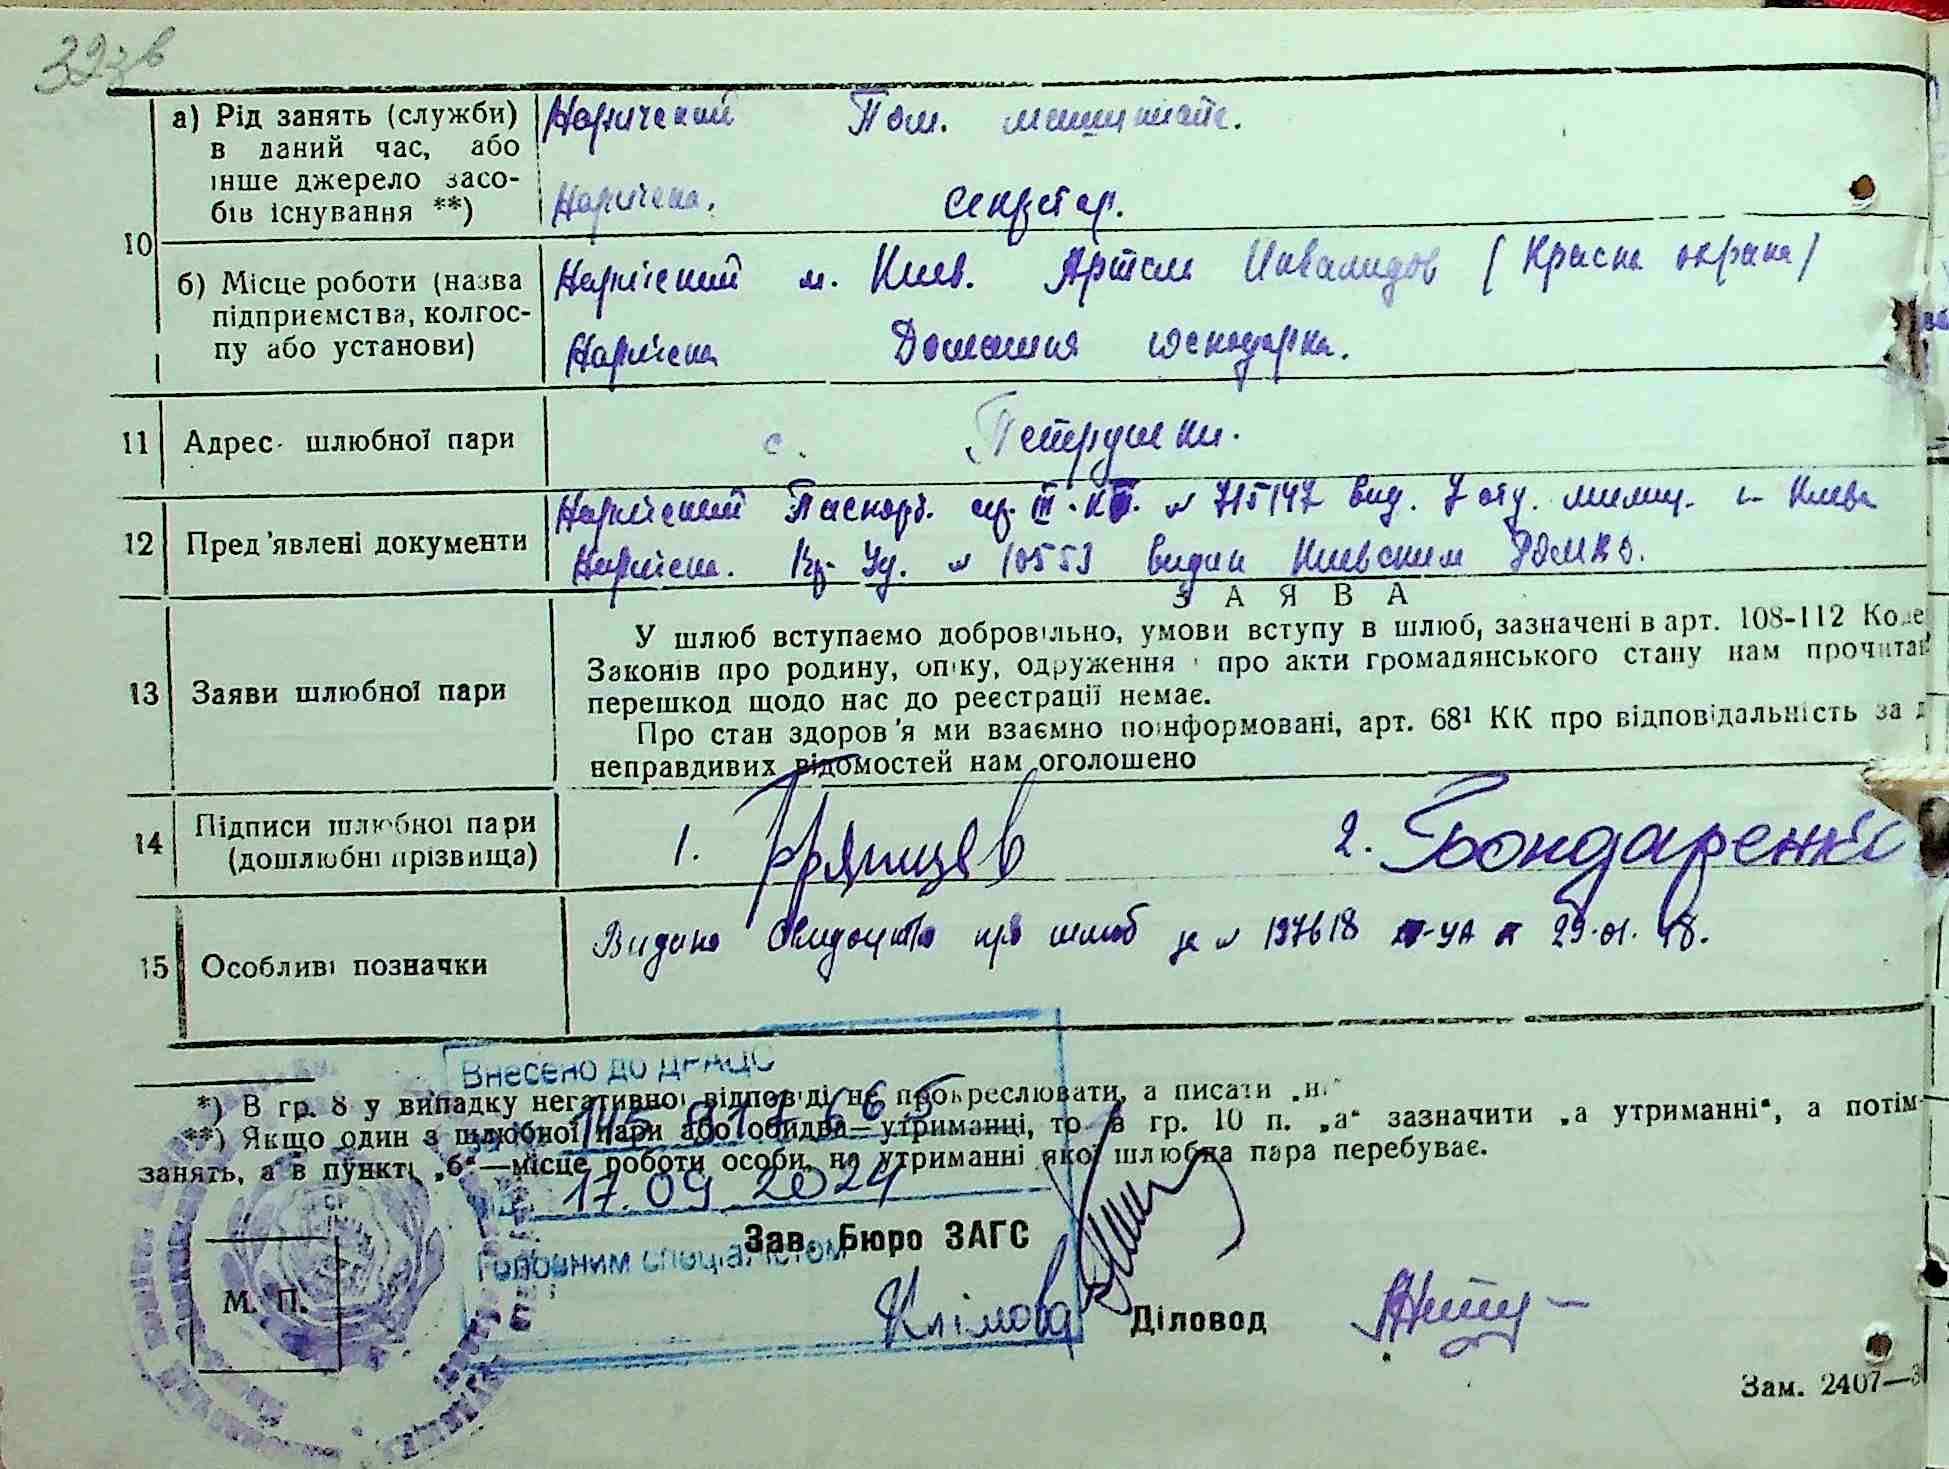 32зв
а) Рід занять (служби) в даний час, або інше джерело засобів існування **)
Наричений Пом. машиніста.
Наречена. Секретар.
10
б) Місце роботи (назва підприємства, колгоспу або установи)
Наричений м. Киев. Артель Инвалидов (Красна охрана)
Наричена Домашня господарка.
11 Адрес шлюбної пари
с. Петрушки.
12 Пред'явлені документи
Наричений Паспорт. сер. III № 715147 вид. 7 отд. милиц. г. Киева
Наричена. Уд. № 10553 видан Киевским РОМВД.
ЗАЯВА
13 Заяви шлюбної пари
У шлюб вступаємо добровільно, умови вступу в шлюб, зазначені в арт. 108-112
Законів про родину, опіку, одруження про акти громадянського стану нам
перешкод щодо нас до реєстрації немає.
Про стан здоров'я ми взаємно поінформовані, арт. 68¹ КК про відповідальність за
неправдивих відомостей нам оголошено
14 Підписи шлюбної пари (дошлюбні прізвища)
1. 2. Бондаренко
15 Особливі позначки
Видано свидоцтво про шлюб за № 197618 УА 29.01.48.
Внесено до ДРАЦС
*) В гр. 8 у випадку негативної відповіді не прокреслювати, а писати „н
**) Якщо один з шлюбної пари або обидва—утриманці, то в гр. 10 п. „а“ зазначити „а утриманні“, а потім
занять, а в пункті „б“—місце роботи особи, на утриманні якої шлюбна пара перебуває.
17.09.2024
Зав. Бюро ЗАГС
Головним спеціалістом
М. П.
Клімова
Діловод
Зам. 2407—3